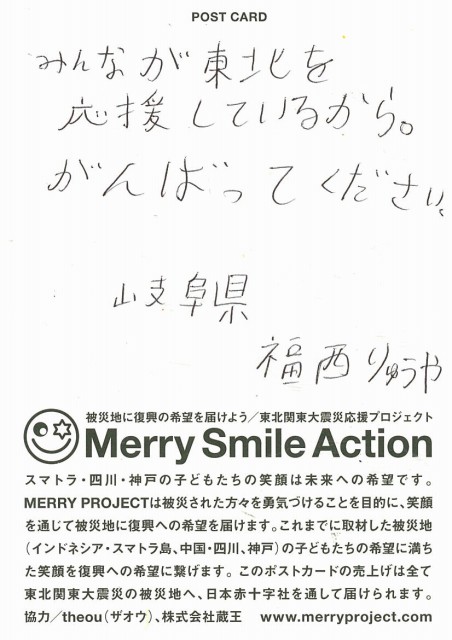 POST CARD
みんなが東北を
応援しているから。
がんばってください。
岐阜県
福西りゅうや
被災地に復興の希望を届けよう／東北関東大震災応援プロジェクト
Merry Smile Action
スマトラ・四川・神戸の子どもたちの笑顔は未来への希望です。
MERRY PROJECTは被災された方々を勇気づけることを目的に、笑顔
を通じて被災地に復興への希望を届けます。これまでに取材した被災地
（インドネシア・スマトラ島、中国・四川、神戸）の子どもたちの希望に満ち
た笑顔を復興への希望に繋げます。このポストカードの売上げは全て
東北関東大震災の被災地へ、日本赤十字社を通して届けられます。
協力／theou（ザオウ）、株式会社蔵王　www.merryproject.com